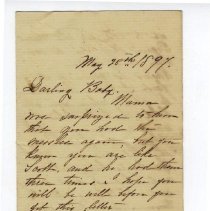 May 28th 1897.
Darling Baby.
Mama
was surprized to hear
that you had the
measles again, but you
know you are like
and he had them
three times. I hope you
will be well before you
get this letter